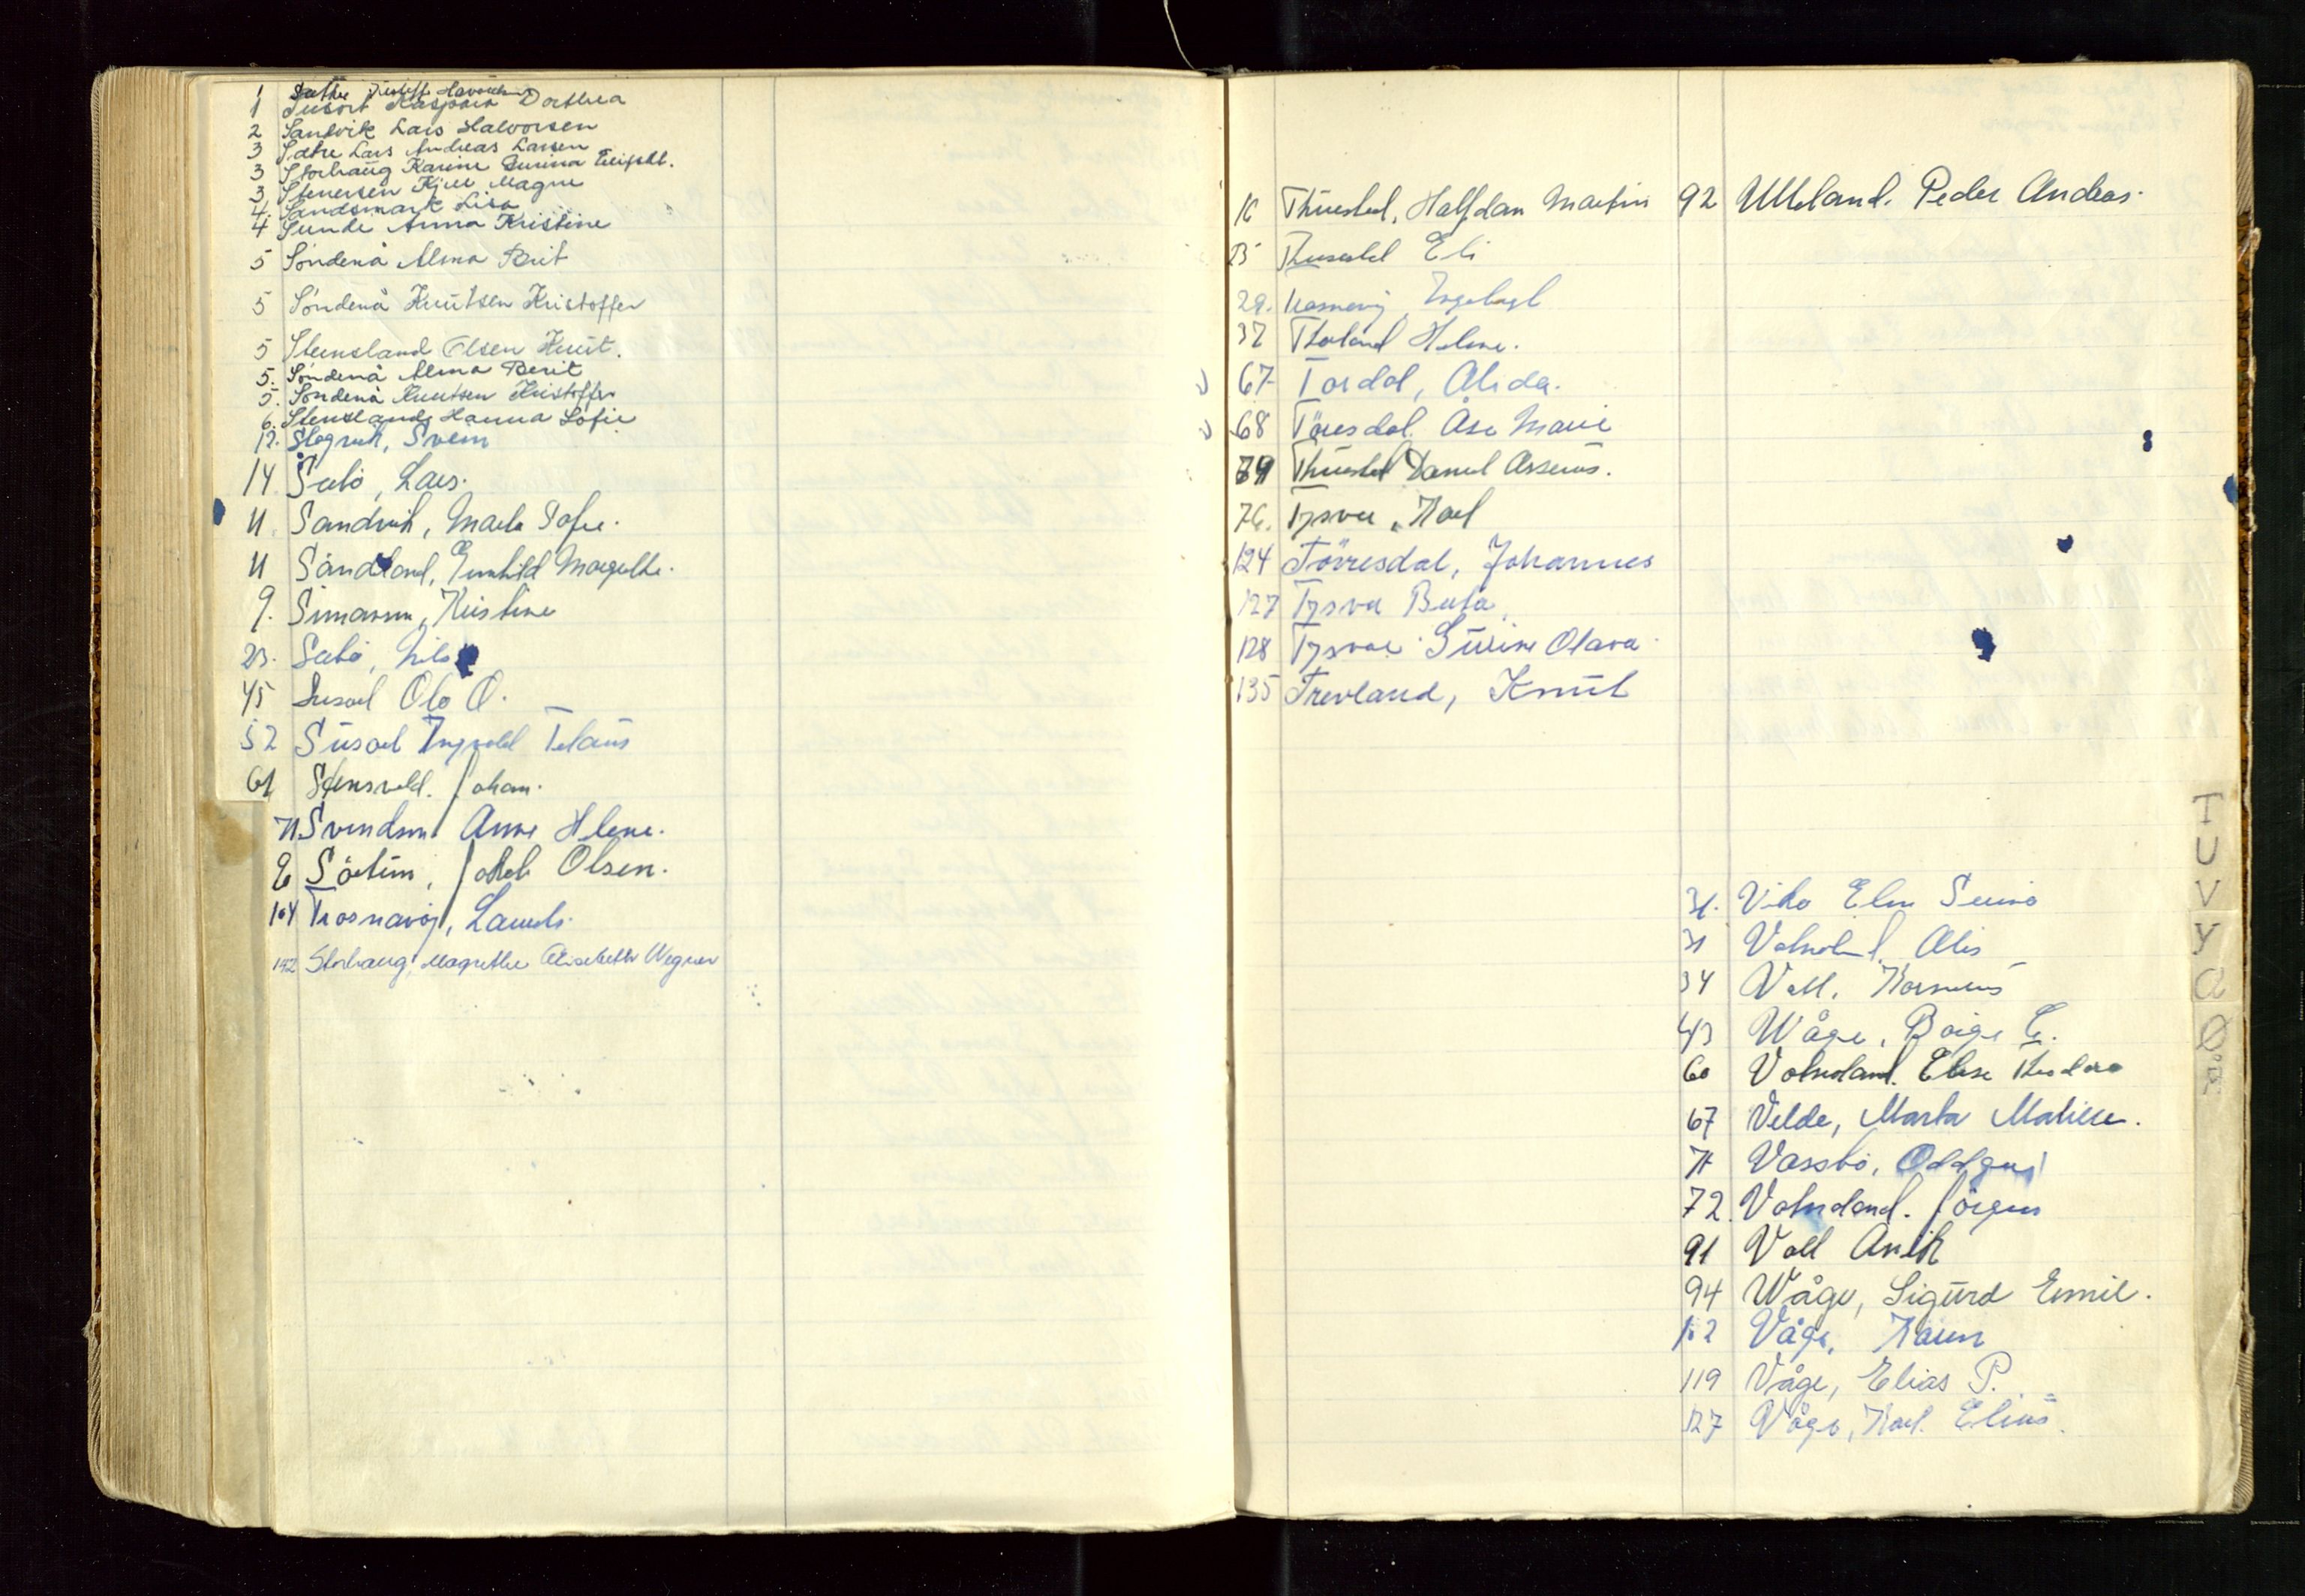 1 Sæther
1 Susort Kaspara Dorthea
2 Sandvik Lars Halvorsen
3 Sætre Lars Andreas Larsen
3 Storhaug Karine Gurina
3 Stenersen Kjell Magne
4. Sandsmark Lisa
4 Sunde Anna Kristine
5 Söndenå Alma Berit
5 Söndenå Knutsen Kristoffer
5 Stensland Olsen Knut.
5. Söndenå Alma Berit
5. Söndenå Knutsen Kristoffer
6. Stensland Hanna Sofie
12. Svein
14 Sæbö, Lars.
11 Sandvik, Marta Sofie.
11 Sandland, Gunhild Margrethe.
9. Simonsen, Kristine
23. Sæbö, Nils
45 Susort Ola O.
52 Susort Ingvald Telaus
61 Stensvold. Johan.
71 Svendsen Anne Helene.
Sörtun, Jakob Olsen.
104 Trosnavåg, Laurits.
142 Storhaug, Magrethe Elisabeth Wegner
16 Thuestad, Halfdan Martin
Thuestad Eli
29. Trosnavåg Ingeborg
37 Tholand Helene.
67 Tordal, Alida.
68 Töresdal. Åse Marie
79 Thuestad Daniel Asseus.
76. Tysvær, Karl
124 Törresdal, Johannes
127 Tysvær Berta
128 Tysvær Gurine Olava
135 Trevland, Knut
92 Ulleland. Peder Andreas.
31. Vika Elen Serine
31 Valnoland. Alis
34 Voll. Kornelius
43 Wåge, Börge E.
60 Volnoland. Elise Theodora
67 Velde, Marta Malene.
71 Vassbö, Oddgeir
72. Jörgen
91 Voll Anik
94 Wåge, Sigurd Emil.
102 Våge, Karen
119 Våge, Elias P.
127 Våge, Karl Elius.
T
U
V
Y
Ø
Å